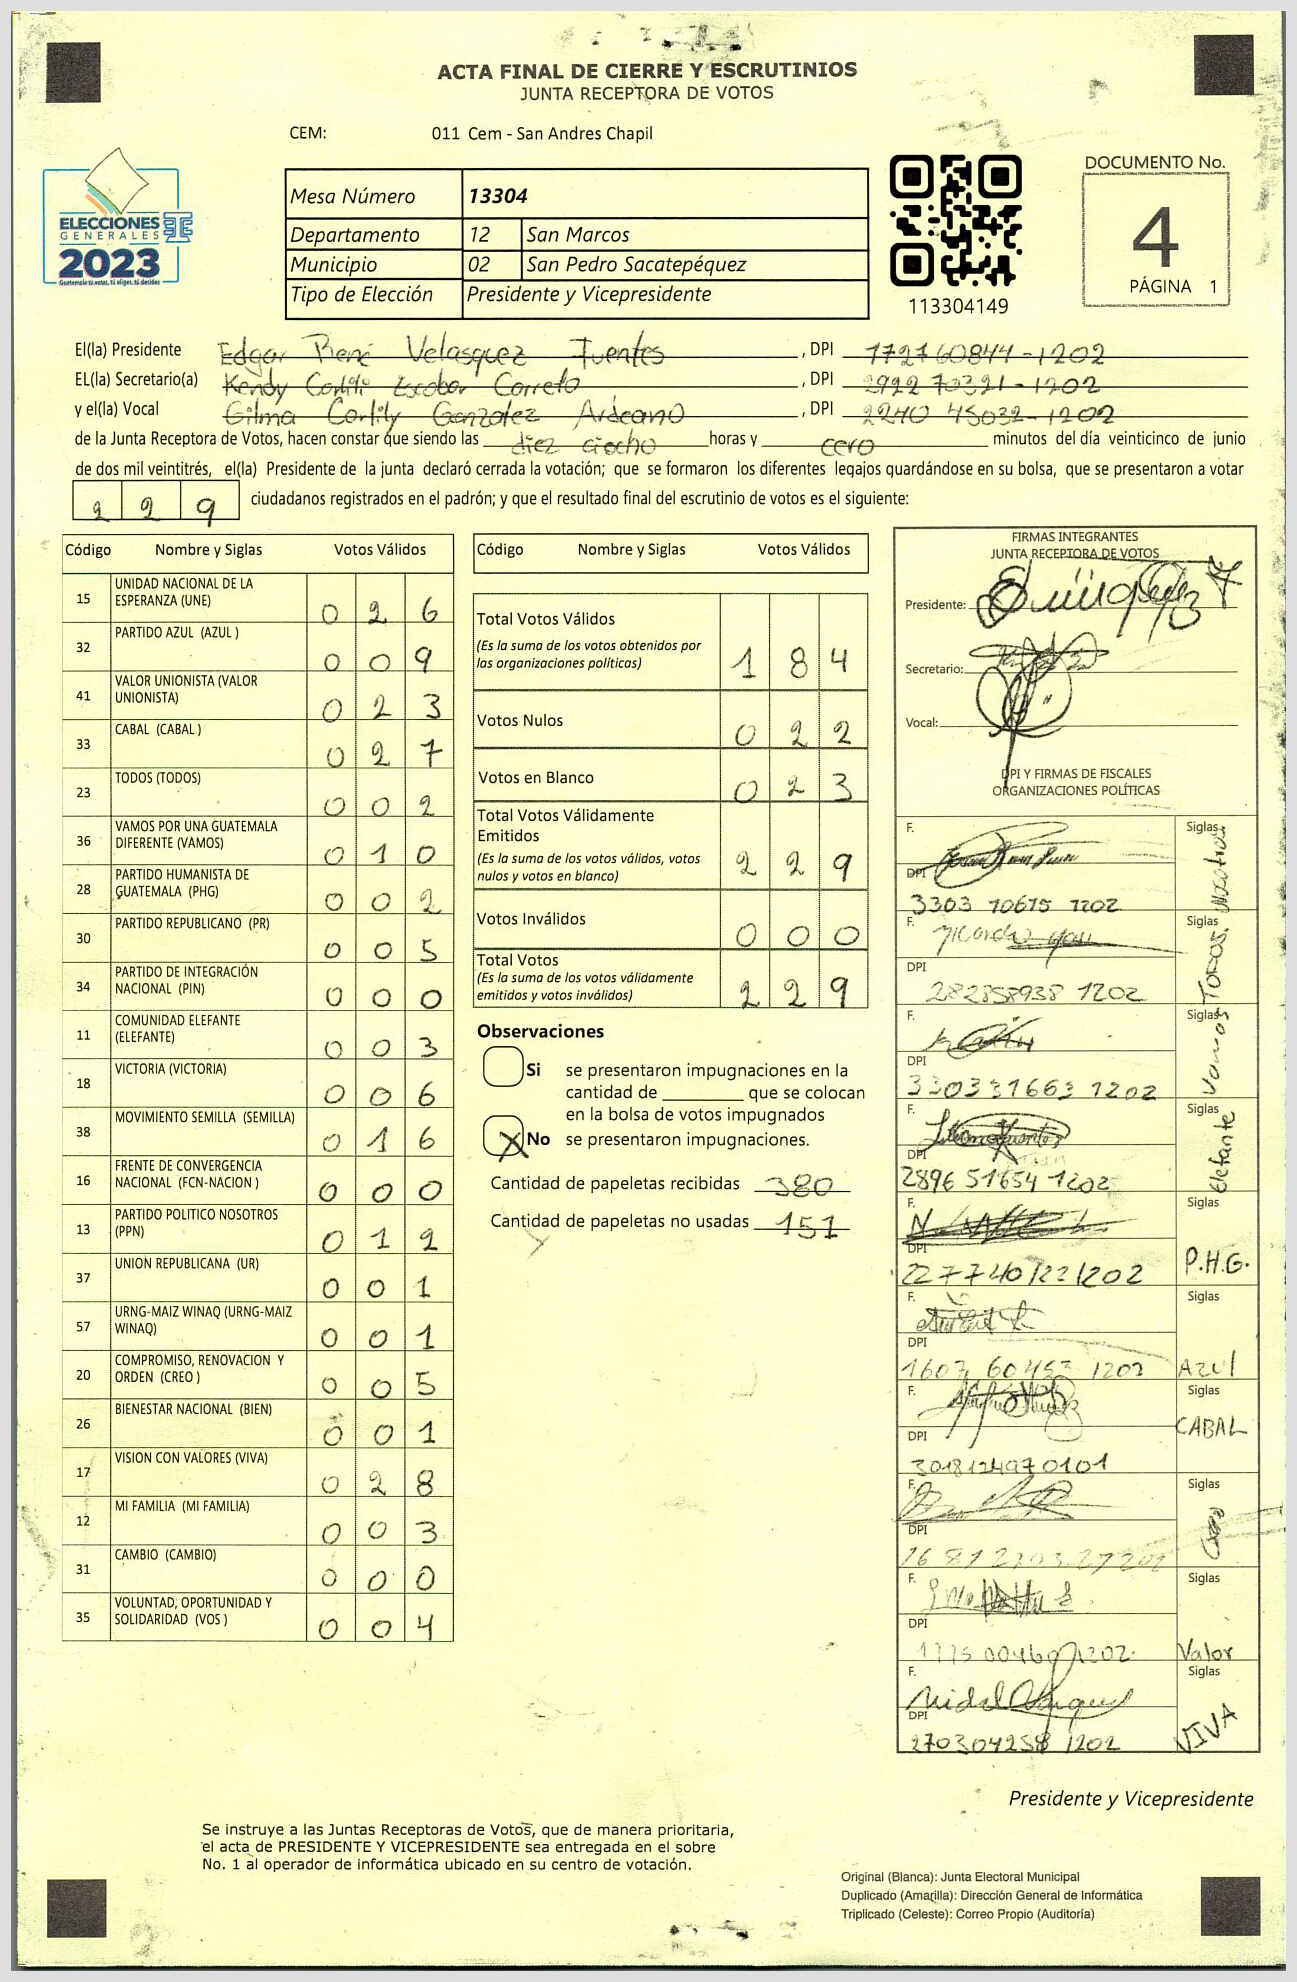 ACTA FINAL DE CIERRE Y ESCRUTINIOS
JUNTA RECEPTORA DE VOTOS
CEM: 011 Cem - San Andres Chapil
ELECCIONES
GENERALES
2023
Guatemala tú votas, tú eliges, tú decides
Mesa Número 13304
Departamento 12 San Marcos
Municipio 02 San Pedro Sacatepéquez
Tipo de Elección Presidente y Vicepresidente
113304149
DOCUMENTO No.
4
PÁGINA 1
El(la) Presidente Edgar René Velasquez Fuentes, DPI 172760844-1202
EL(la) Secretario(a) Kendy Escobar Carreto, DPI 2922 70321-1202
y el(la) Vocal Gilma Gonzalez, DPI 2240 45032-1202
de la Junta Receptora de Votos, hacen constar que siendo las diez ciocho horas y cero minutos del día veinticinco de junio
de dos mil veintitrés, el(la) Presidente de la junta declaró cerrada la votación; que se formaron los diferentes legajos quardándose en su bolsa, que se presentaron a votar
229 ciudadanos registrados en el padrón; y que el resultado final del escrutinio de votos es el siguiente:
Código Nombre y Siglas Votos Válidos
15 UNIDAD NACIONAL DE LA ESPERANZA (UNE) 0 2 6
32 PARTIDO AZUL (AZUL ) 0 0 9
41 VALOR UNIONISTA (VALOR UNIONISTA) 0 2 3
33 CABAL (CABAL ) 0 2 7
23 TODOS (TODOS) 0 0 2
36 VAMOS POR UNA GUATEMALA DIFERENTE (VAMOS) 0 1 0
28 PARTIDO HUMANISTA DE GUATEMALA (PHG) 0 0 2
30 PARTIDO REPUBLICANO (PR) 0 0 5
34 PARTIDO DE INTEGRACIÓN NACIONAL (PIN) 0 0 0
11 COMUNIDAD ELEFANTE (ELEFANTE) 0 0 3
18 VICTORIA (VICTORIA) 0 0 6
38 MOVIMIENTO SEMILLA (SEMILLA) 0 1 6
16 FRENTE DE CONVERGENCIA NACIONAL (FCN-NACION ) 0 0 0
13 PARTIDO POLITICO NOSOTROS (PPN) 0 1 2
37 UNION REPUBLICANA (UR) 0 0 1
57 URNG-MAIZ WINAQ (URNG-MAIZ WINAQ) 0 0 1
20 COMPROMISO, RENOVACION Y ORDEN (CREO ) 0 0 5
26 BIENESTAR NACIONAL (BIEN) 0 0 1
17 VISION CON VALORES (VIVA) 0 2 8
12 MI FAMILIA (MI FAMILIA) 0 0 3
31 CAMBIO (CAMBIO) 0 0 0
35 VOLUNTAD, OPORTUNIDAD Y SOLIDARIDAD (VOS ) 0 0 4
Código Nombre y Siglas Votos Válidos
Total Votos Válidos 1 8 4
(Es la suma de los votos obtenidos por
las organizaciones políticas)
Votos Nulos 0 2 2
Votos en Blanco 0 2 3
Total Votos Válidamente
Emitidos 2 2 9
(Es la suma de los votos válidos, votos
nulos y votos en blanco)
Votos Inválidos 0 0 0
Total Votos 2 2 9
(Es la suma de los votos válidamente
emitidos y votos inválidos)
Observaciones
Si se presentaron impugnaciones en la
cantidad de ________ que se colocan
en la bolsa de votos impugnados
X No se presentaron impugnaciones.
Cantidad de papeletas recibidas 380
Cantidad de papeletas no usadas 151
FIRMAS INTEGRANTES
JUNTA RECEPTORA DE VOTOS
Presidente:
Secretario:
Vocal:
DPI Y FIRMAS DE FISCALES
ORGANIZACIONES POLÍTICAS
F. Siglas
DPI
3303 10675 1202
F. Siglas TODOS
DPI
282858938 1202
F. Siglas Vamos
DPI
330331663 1202
F. Siglas Elefante
DPI
2896 51654 1202
F. Siglas P.H.G.
DPI
F. Siglas AZUL
DPI
1607 60453 1202
F. Siglas CABAL
DPI
301812497 0101
F. Siglas
DPI
F. Siglas Valor
DPI
F. Siglas VIVA
DPI
270304258 1202
Presidente y Vicepresidente
Se instruye a las Juntas Receptoras de Votos, que de manera prioritaria,
el acta de PRESIDENTE Y VICEPRESIDENTE sea entregada en el sobre
No. 1 al operador de informática ubicado en su centro de votación.
Original (Blanca): Junta Electoral Municipal
Duplicado (Amarilla): Dirección General de Informática
Triplicado (Celeste): Correo Propio (Auditoría)